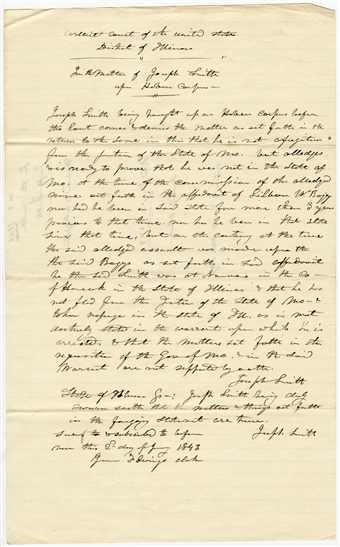 Circuit Court of the United States
District of Illinois
In the Matter of Joseph Smith
upon Habeas Corpus —
Joseph Smith being brought up on Habeas Corpus before
this Court comes & denies the matter as set forth in the
return to the same in this that he is not a fugitive
from the justice of the State of Mo. but alledges
& is ready to prove that he was not in the State of
Mo. at the time of the commission of the alledged
crime set forth in the affidavit of Lilburn W Boggs
nor had he been in said State for more than 3 years
previous to that time nor has he been in that state
since that time, but on the contrary at the time
the said alledged assault was made upon the
the said Boggs as set forth in said affidavit
he the said Smith was at Nauvoo in the Co
of Hancock in the State of Illinois & that he has
not fled from the Justice of the State of Mo &
taken refuge in the State of Ill. as is most
stated in the warrant upon which he is
arrested & that the matters set forth in the
requisition of the Govr of Mo. & in the said
Warrant are not supported by oath.
Joseph Smith
State of Illinois Joseph Smith being duly
sworn saith that the matters & things set forth
in the foregoing Statement are true.
Sworn to & subscribed to before Joseph Smith
me this 2d day of Jany 1843
Owings clerk